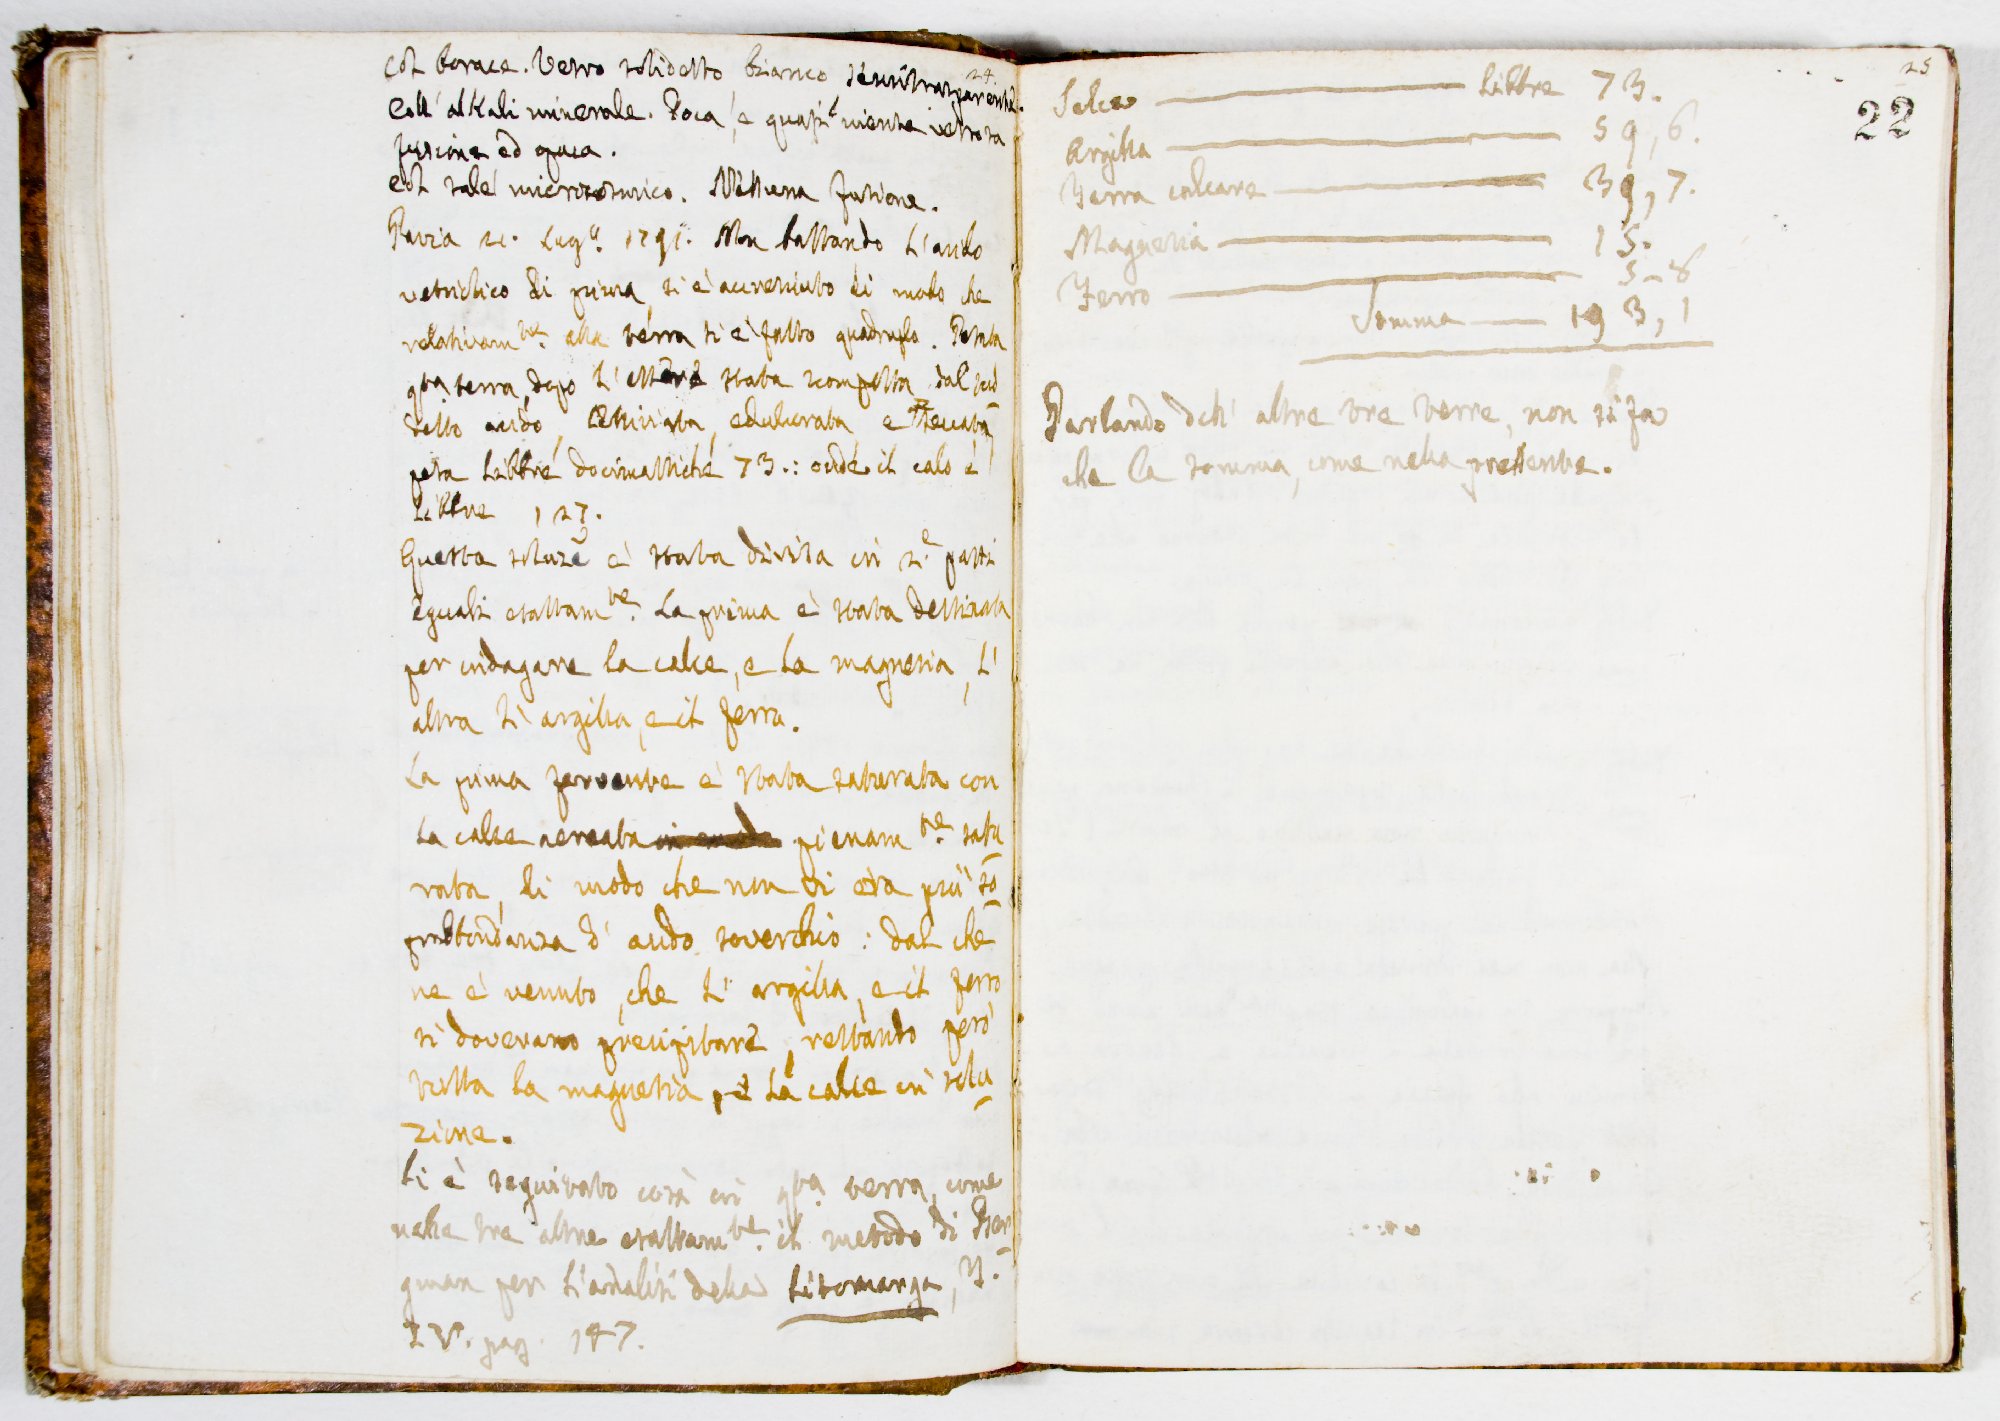 24.
Col borace. Vetro solidetto bianco, semitrasparente.
Coll' alkali minerale. Poca, e quasi niente vetrosa
fusione ed opaca.
Col sale microcosmico. Nissuna fusione.
Pavia 21. Lugº. 1791. Non bastando l'acido
vetriolico di prima, si è accresciuto di modo che
relativamte. alla terra si è fatto quadruplo.
qta terra, dopo l'essere stata scomposta dal sud
detto acido, lissiviata, edulcorata, e seccata
pesa libbre docimastiche 73.: onde il calo è
libbre 127.
Questa soluze è stata divisa in 2.e parti
eguali esattamte. La prima è stata destinata
per indagare la calce, e la magnesia, l'
altra l'argilla, e il ferro.
La prima fervente è stata saturata con
la calce aereata pienamte. satu
rata, di modo che non vi era più so
prabbondanza d'acido soverchio: dal che
ne è venuto, che l'argilla, e il ferro
si dovevano precipitare, restando però
tutta la magnesia, e la calce in solu
zione.
Si è seguitato così in qta terra, come
nelle tre altre esattamte. il metodo di Ber
gman per l'analisi della Litomarga, T.
IV. pag. 147.
25
22
Selce — Libbre 73.
Argilla — 59,6.
Terra calcare — 39,7.
Magnesia — 15.
Ferro — 5-8
Somma — 193,1
Parlando dell' altre tre terre, non si fa
che la somma, come nella presente.